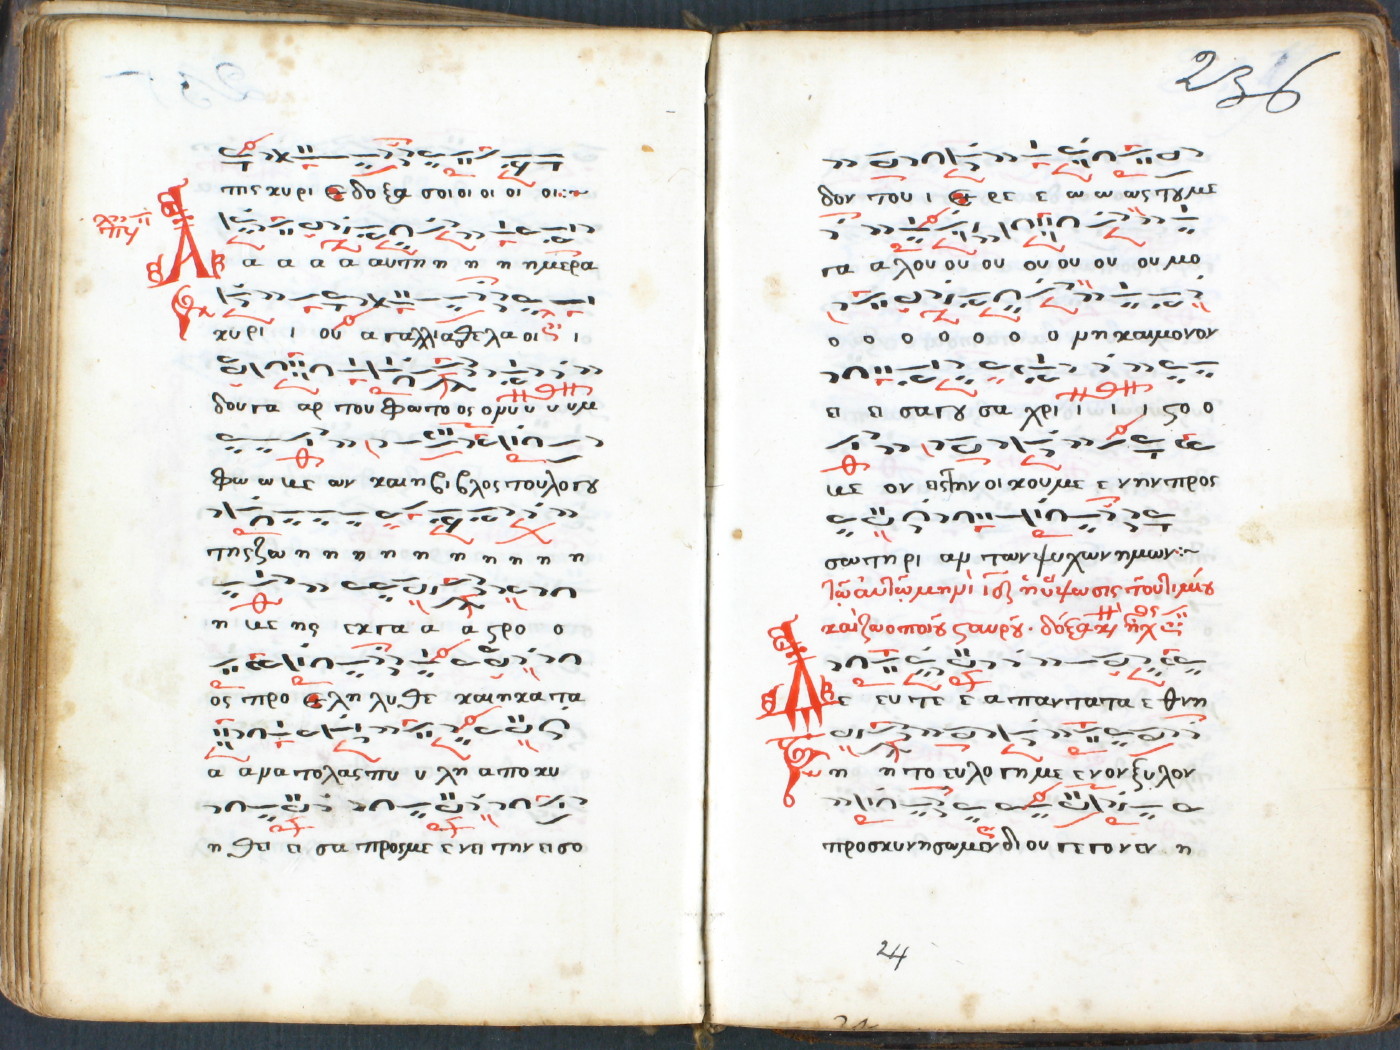 της κυρι ε δοξα σοι οι οι οι οι:~
Α α α α α αυτη η η η ημερα
κυρι ι ου α γαλλιαθελαοι ι
δου γα αρ που φωτο ος ο μυ υ υ υμ
φω ω με ων και η βι βλος του λο γου
της ζω η η η η η η η η η η
η με ης εκ γα α α στρο ο
ος προ ε λη λυ θε και η κα τα
α α να πο λας πυ υ λη α πο κυ
η θει ει σα προς με ε νει την ει σο
236
δον του ι ε ρε ε ω ω ως του με
γα α λου ου ου ου ου ου ου μο
ο ο ο ο ο ο ο μη και μονον
ει ει σα γου σα χρι ι ι ι στο ο
με ον εις την οι κου με ε νην προς
σωτηρι αν των ψυχων ημων:~
τῶ αὐτῶ μηνὶ ιδ ἡ ὕψωσις τοῦ τιμίου
καὶ ζωοποιοῦ σταυροῦ. δόξα καὶ νῦν ἦχος
Δε ευ τε ε α παν τα τα ε θνη
η η το ευ λο γη με ε νον ξυ λον
προσκυνησωμεν δι ου γε γο νεν η
24